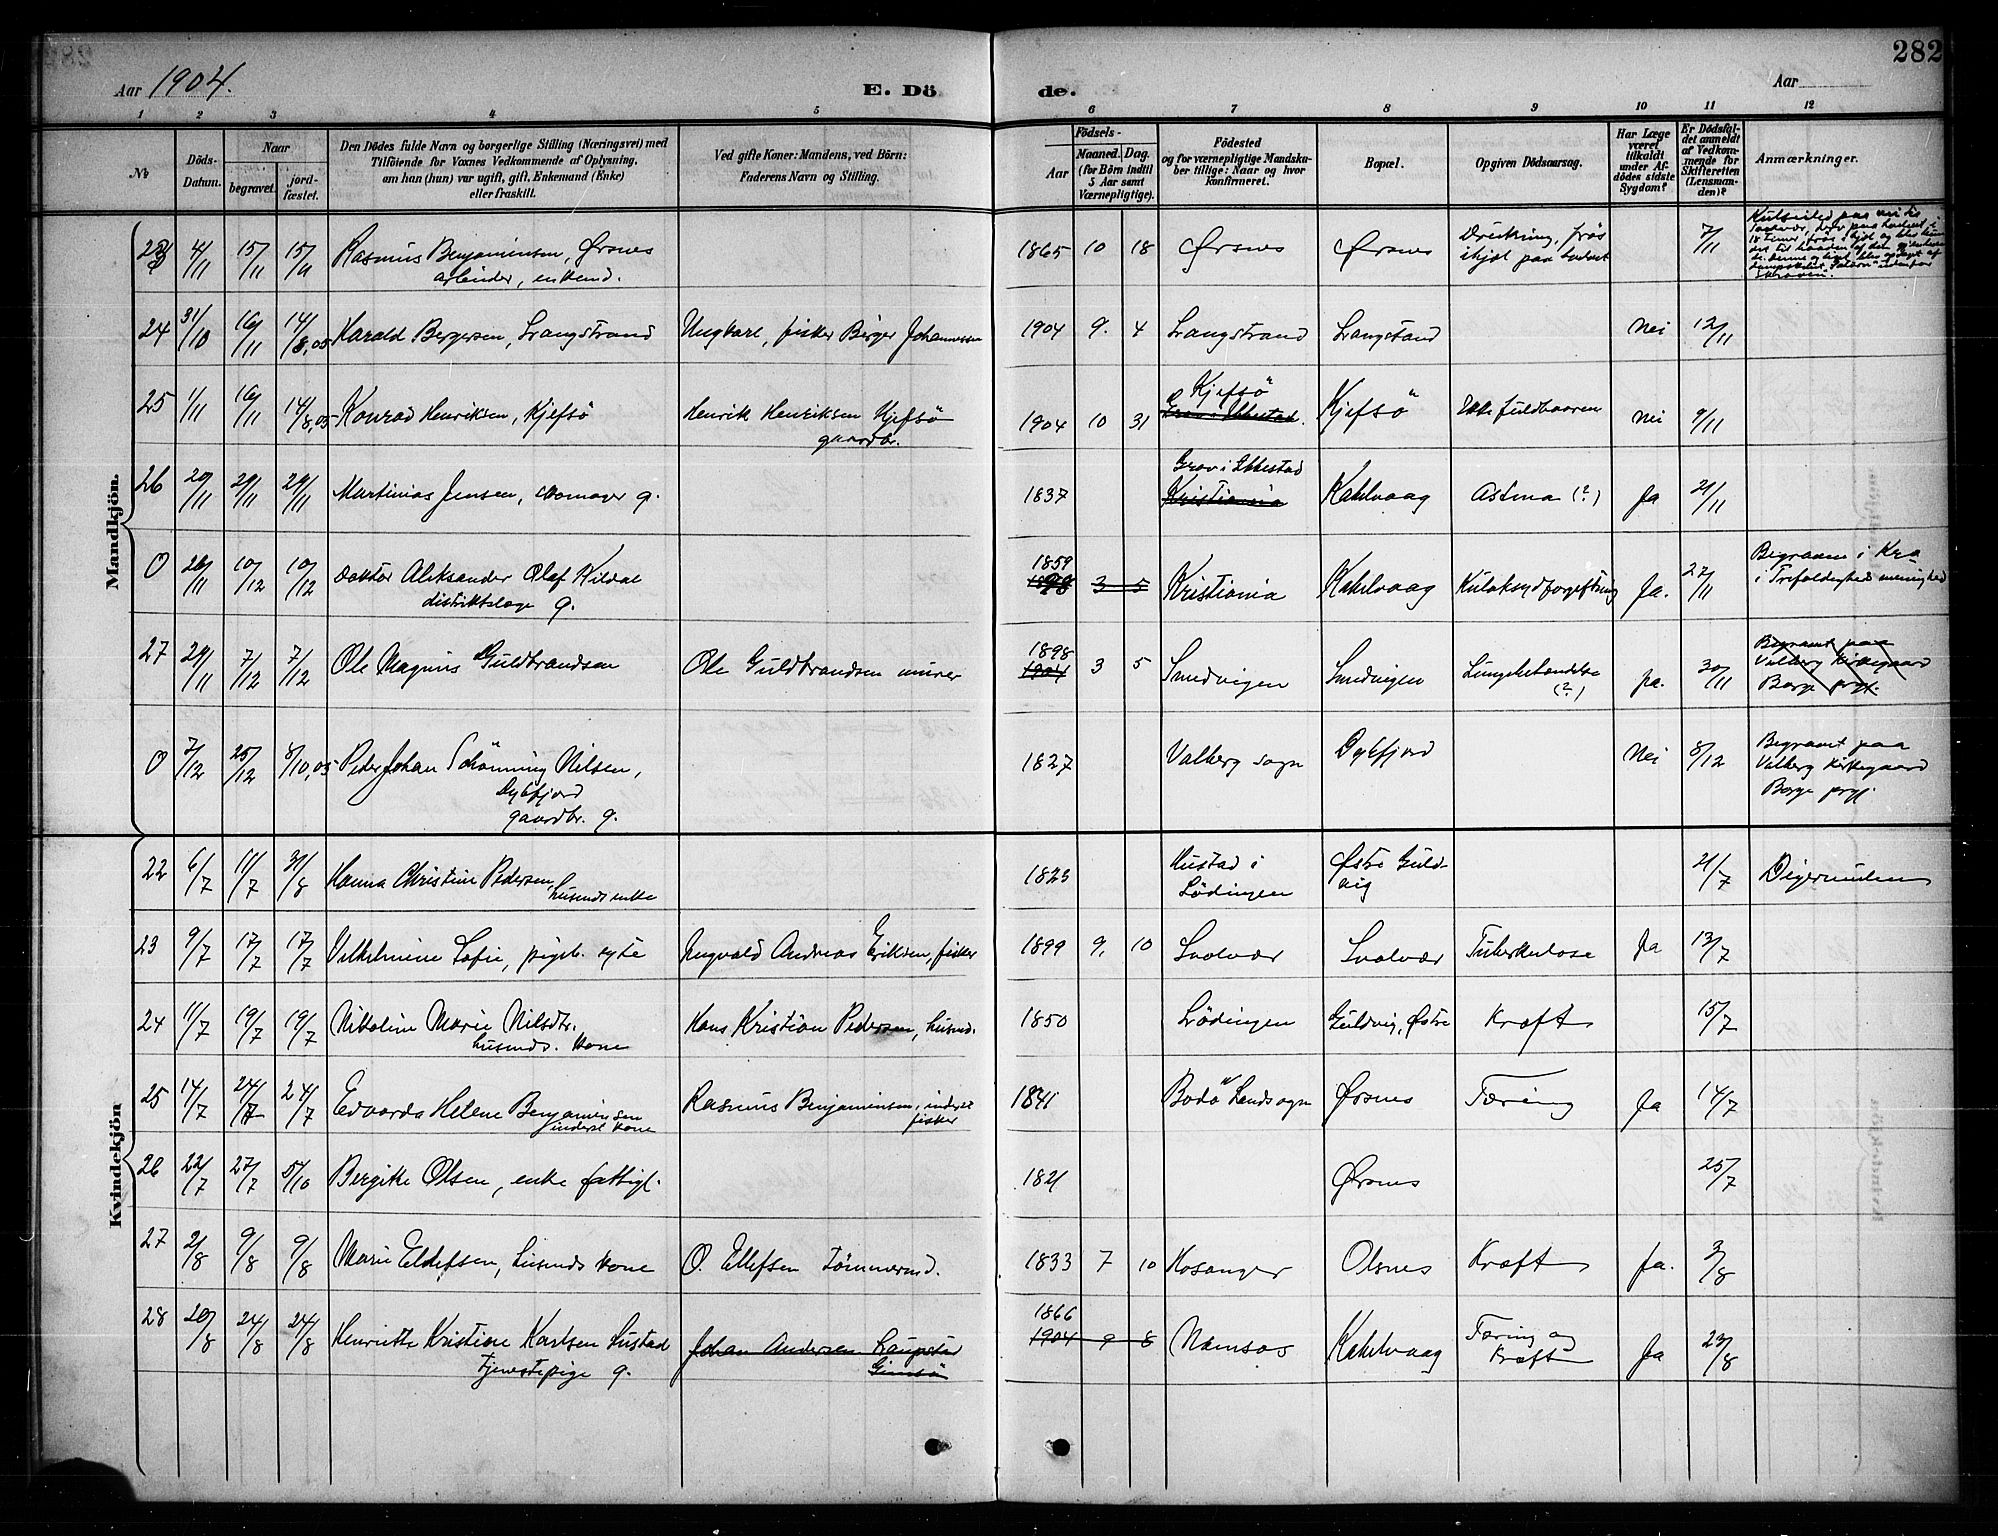 282
Aar 1904.
E. Dö
de.
Aar
1 2 3 4 5 6 7 8 9 10 11 12
No
Döds-Datum.
Naar
begravet.
jord-fæstet.
Den Dödes fulde Navn og borgerlige Stilling (Næringsvei) med
Tilföiende for Voxnes Vedkommende af Oplysning,
om han (hun) var ugift, gift, Enkemand (Enke)
eller fraskilt.
Ved gifte Koner: Mandens, ved Börn:
Faderens Navn og Stilling.
Födsels-
Aar
Maaned. Dag.
(for Börn indtil
5 Aar samt
Værnepligtige).
Födested
og for værnepligtige Mandsku-
ber tillige: Naar og hvor
konfirmeret.
Bopæl.
Opgiven Dödsaarsag.
Har Læge
været
tilkaldt
under Af-
dödes sidste
Sygdom?
Er Dödsfal-
det anmeldt
af Vedkom-
mende for
Skifteretten
(Lensman-
den)?
Anmærkninger.
Mandkjön.
23 4/11 15/11 15/11 Rasmus Benjaminsen, Ørsnes
arbeider, enkem.
1865 10 18 Ørsnes Ørsnes Drukning, frøs
ihjel paa 7/11
24 31/10 16/11 14/8,05 Harald Bergersen, Langstrand Ungkarl, fisker Birger Johannessen 1904 9. 4 Langstrand Langstrand Nei 12/11
25 1/11 16/11 14/8,05 Konrad Henriksen, Kjefsö Henrik Henriksen Kjefsö
gaardbr.
1904 10 31 Kjefsö Kjefsö Ikke fuldbaaren Nei 9/11
Grav i Ibbestad.
26 20/11 29/11 29/11 Martinius Jensen, skomager g. 1837 Grav i Ibbestad
Kristiania Kabelvaag Astma (?) Ja 21/11
0 26/11 10/12 10/12 Doktor Aleksander Olaf Kildal
distriktslæge g.
1859
3 5 Kristiania Kabelvaag Kuloksydforgiftning Ja. 27/11 Begraven i Kra
i Trefoldigheds menighed
27 29/11 7/12 7/12 Ole Magnus Guldbrandsen Ole Guldbrandsen murer 1898
1904 3 5 Smedvigen Smedvigen Lungebetændelse
(?) ja. 30/11 Begravet paa
Valberg Kirkegaard
Borge prgj.
0 7/12 25/12 8/10,05 Peder Johan Schönning Nilsen,
Dybfjord
gaardbr. g.
1827 Valberg sogn Dybfjord Nei 8/12 Begravet paa
Valberg Kirkegaard
Borge prgj.
Kvindekjön
22 6/7 11/7 31/8 Hanna Christine Pedersen,
husmds enke
1823 Hustad i
Lödingen Østre Guld-
vig 21/7 Digermulen
23 9/7 17/7 17/7 Vilhelmine Sofie, Ingvald Andreas Eriksen, fisker 1899 9. 10 Svolvær Svolvær Tuberkulose Ja 13/7
24 11/7 19/7 19/7 Nikoline Marie Nilsdtr.
husmds. kone
Hans Kristian Pedersen, husmd. 1850 Lödingen Guldvig, Østre Kræft 15/7
25 14/7 24/7 24/7 Edvarda Helene Benjaminsen
inderst kone
Rasmus Benjaminsen, inderst
fisker
1841 Bodö Landsogn Ørsnes Tæring Ja 14/7
26 22/7 27/7 5/10 Bergitte Olsen, enke fattigl. 1821 Ørsnes 25/7
27 2/8 9/8 9/8 Marie Ellefsen, husmds kone O. Ellefsen Tömmermd. 1833 7 10 Hosanger Olsnes Kræft Ja. 3/8
28 20/8 24/8 24/8 Henriette Kristine Karlsen Hustad
tjenestepige g.
Johan Andersen Laupstad
Gimsö
1866
1904 9 8 Namsos Kabelvaag Tæring og
Kræft Ja 23/8